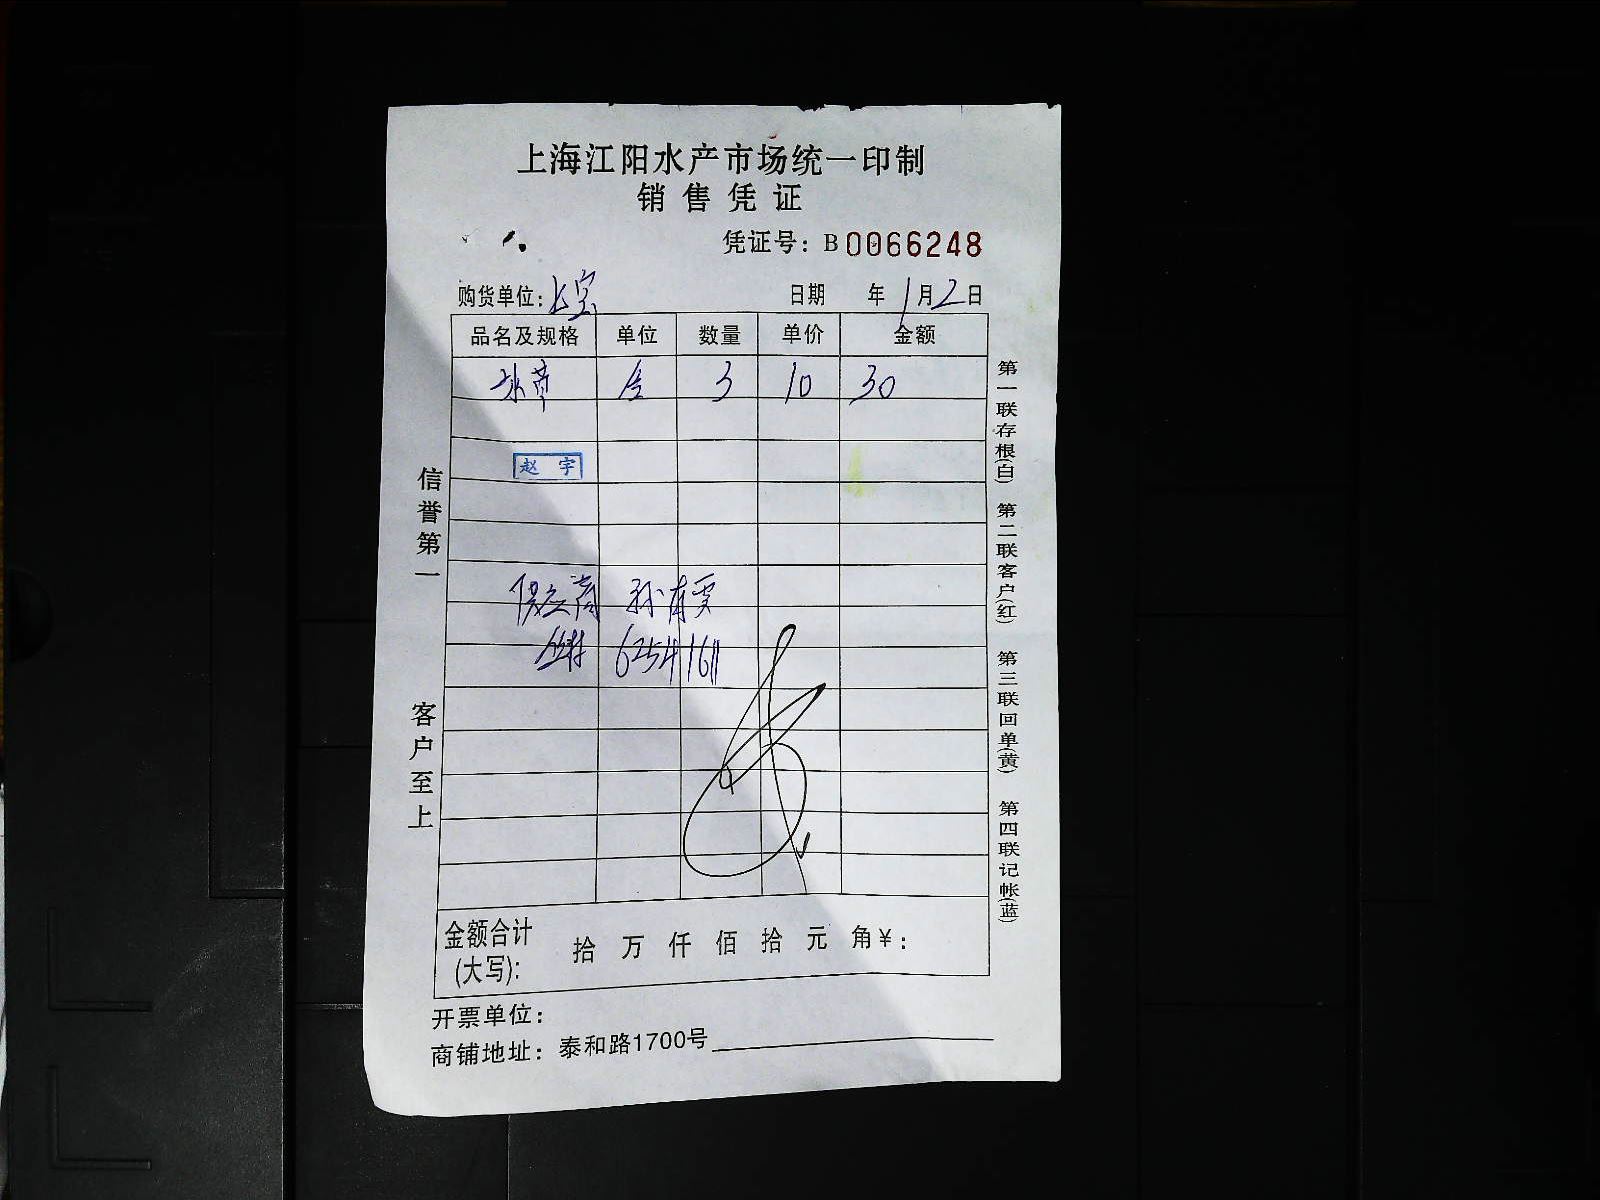 上海江阳水产市场统一印制
销售凭证
凭证号：B0066248
购货单位：上宝 日期 年 1月2日
品名及规格 单位 数量 单价 金额
水草 3 10 30
赵宇
供应商 孙
62541611
信誉第一 客户至上
第一联存根(白) 第二联客户(红) 第三联回单(黄) 第四联记帐(蓝)
金额合计(大写)： 拾 万 仟 佰 拾 元 角 ¥：
开票单位：
商铺地址：泰和路1700号